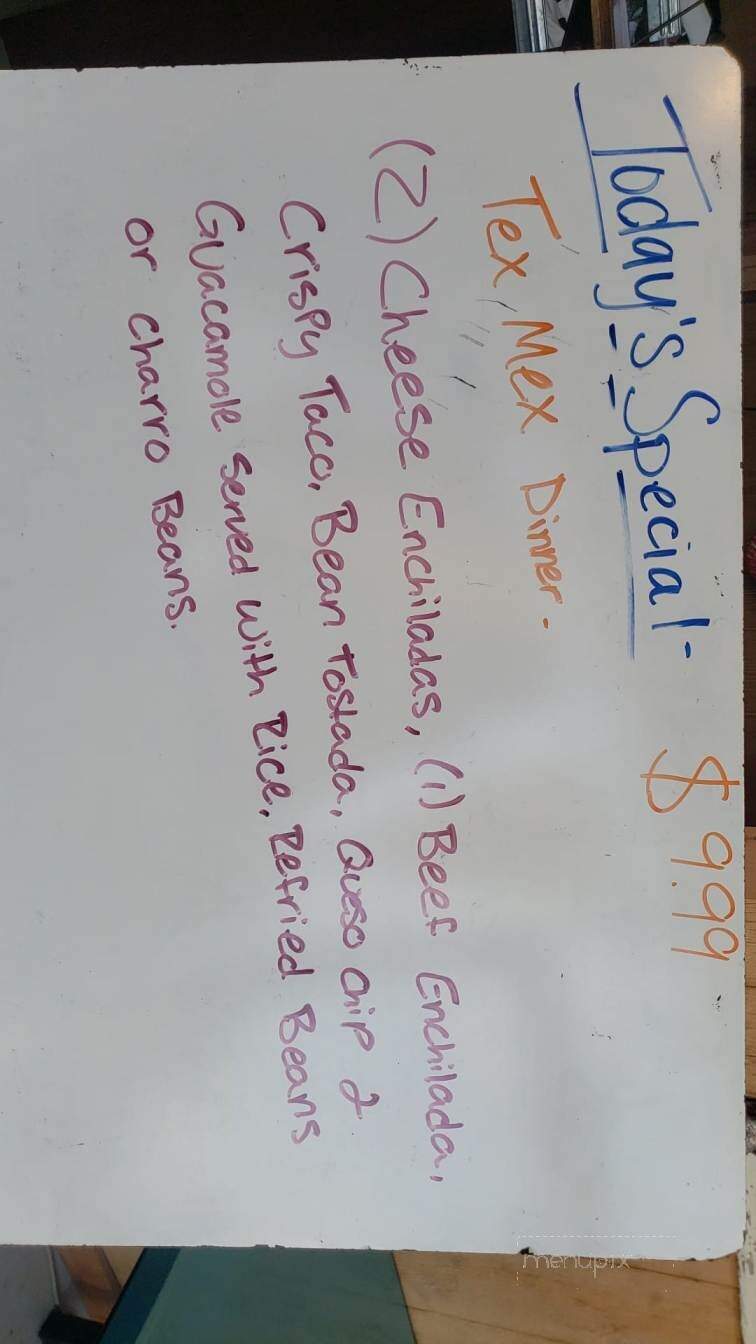 Today's Special- $9.99
Tex Mex Dinner-
(2) Cheese Enchiladas, (1) Beef Enchilada,
Crispy Taco, Bean Tostada, Queso Chip &
Guacamole served with Rice, Refried Beans
or Charro Beans.
menupix